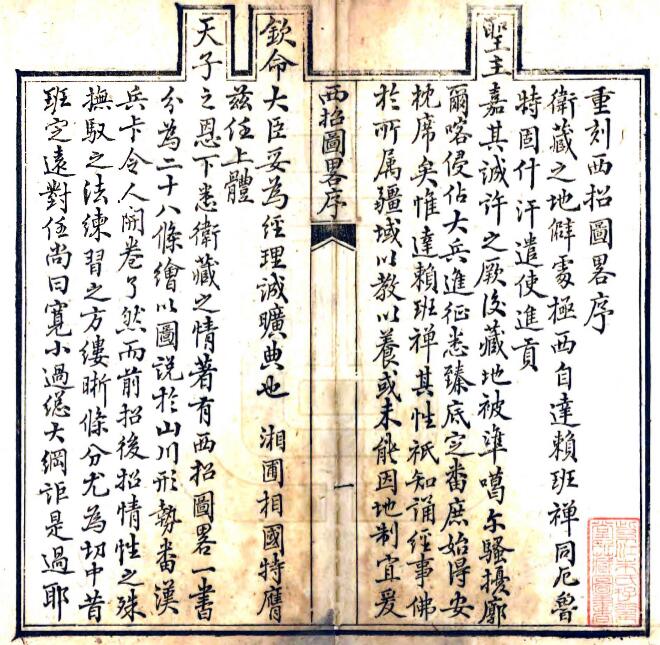 重刻西招圖畧序
衛藏之地僻處極西自達賴班禪同厄魯
特固什汗遣使進貢
聖主嘉其誠許之厥後藏地被準噶尔騷擾廓
爾喀侵佔大兵進征悉臻底定番庶始得安
枕席矣惟達賴班禪其性祇知誦經事佛
於所属疆域以教以養或未能因地制宜爰
西招圖畧序 一
欽命大臣妥為經理誠曠典也 湘圃相國特膺
兹任上體
天子之恩下悉衛藏之情著有西招圖畧一書
分為二十八條繪以圖說於山川形勢番漢
兵卡令人開卷了然而前招後招情性之殊
撫馭之法練習之方縷晰條分尤為切中昔
班定遠對任尚曰寬小過總大綱詎是過耶